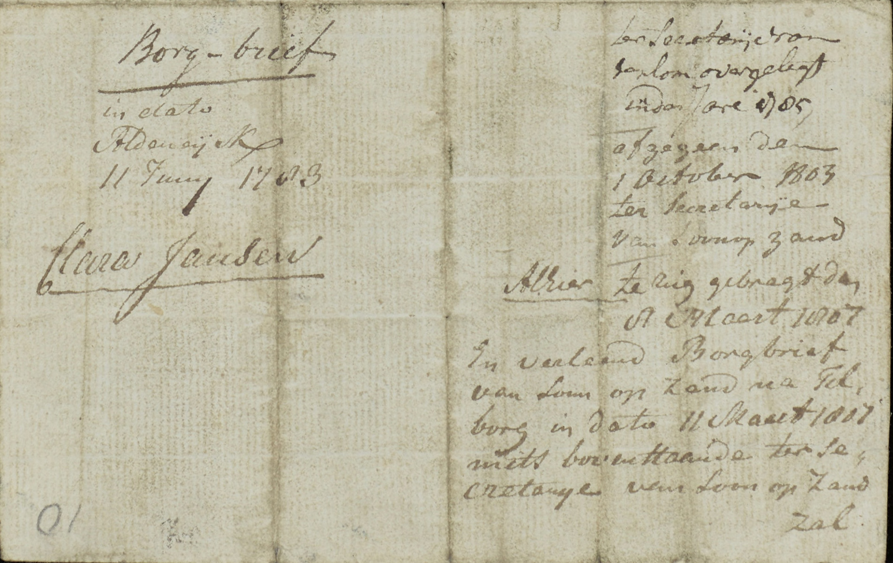 Borg-brief
in dato
Aldeneijck
11 Juny 1783
Clara Jansen
ter Secretarije van
overgelegt
in den Jare 1785
afgegeven den
1 October 1803
ter Secretarije
van Loon op Zand
Alhier te rug gebragt den
8 Maart 1807
En verleend Borgbrief
van Loon op Zand na Til,
borg in dato 11 Maart 1807
mits bovenstaande ter Se,
cretarije van Loon op Zand
zal
01